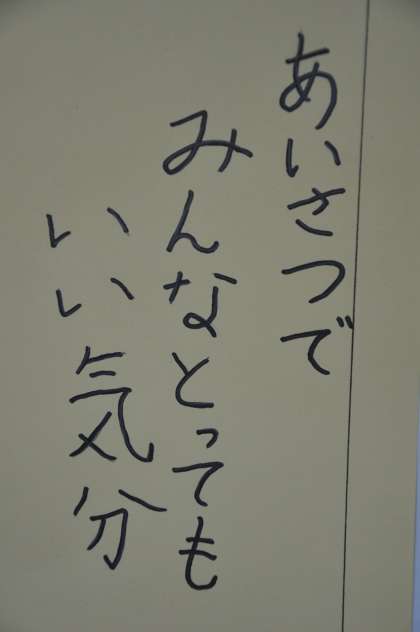 あいさつで
みんなとっても
いい気分